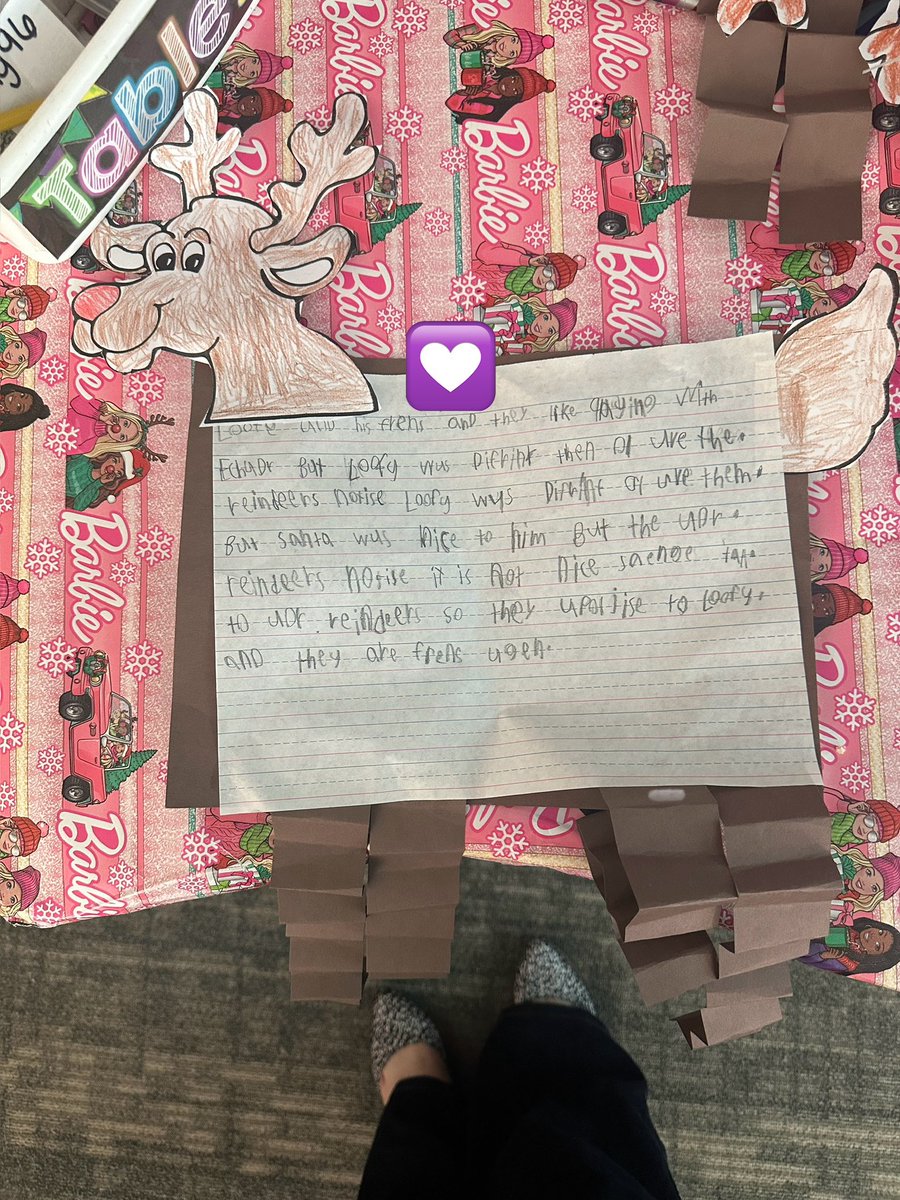 Table
Barbie
Barbie
Barbie
Barbie
Barbie
Barbie
Barbie
Barbie
Loofy and his frens and they like playing with
Echudr But Loofy wus Difrint then of ure the.
reindeers Notise Loofy wus Difrint of ure them.
But santa wus Nice to him But the udr.
reindeers Notise it is Not Nice
to udr reindeers so they upolijise to Loofy.
and they are frens ugen.